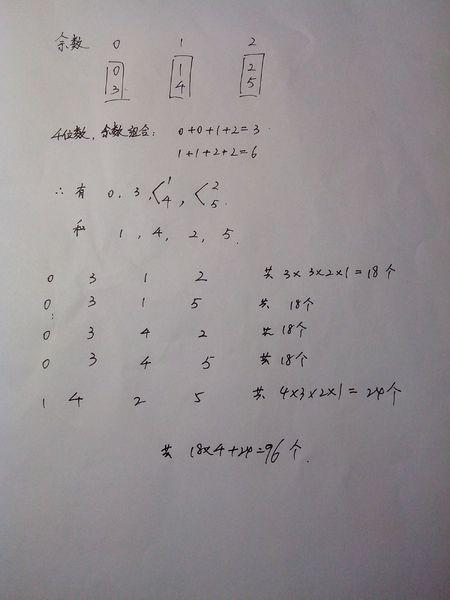 余数 0 1 2
0 1 2
3 4 5
4位数，余数组合： 0+0+1+2=3.
1+1+2+2=6
∴有 0, 3, <1 4, <2 5.
和 1, 4, 2, 5.
0 3 1 2 共 3×3×2×1=18个
0 3 1 5 共 18个
0 3 4 2 共 18个
0 3 4 5 共 18个
1 4 2 5 共 4×3×2×1=24个
共 18×4+24=96个.